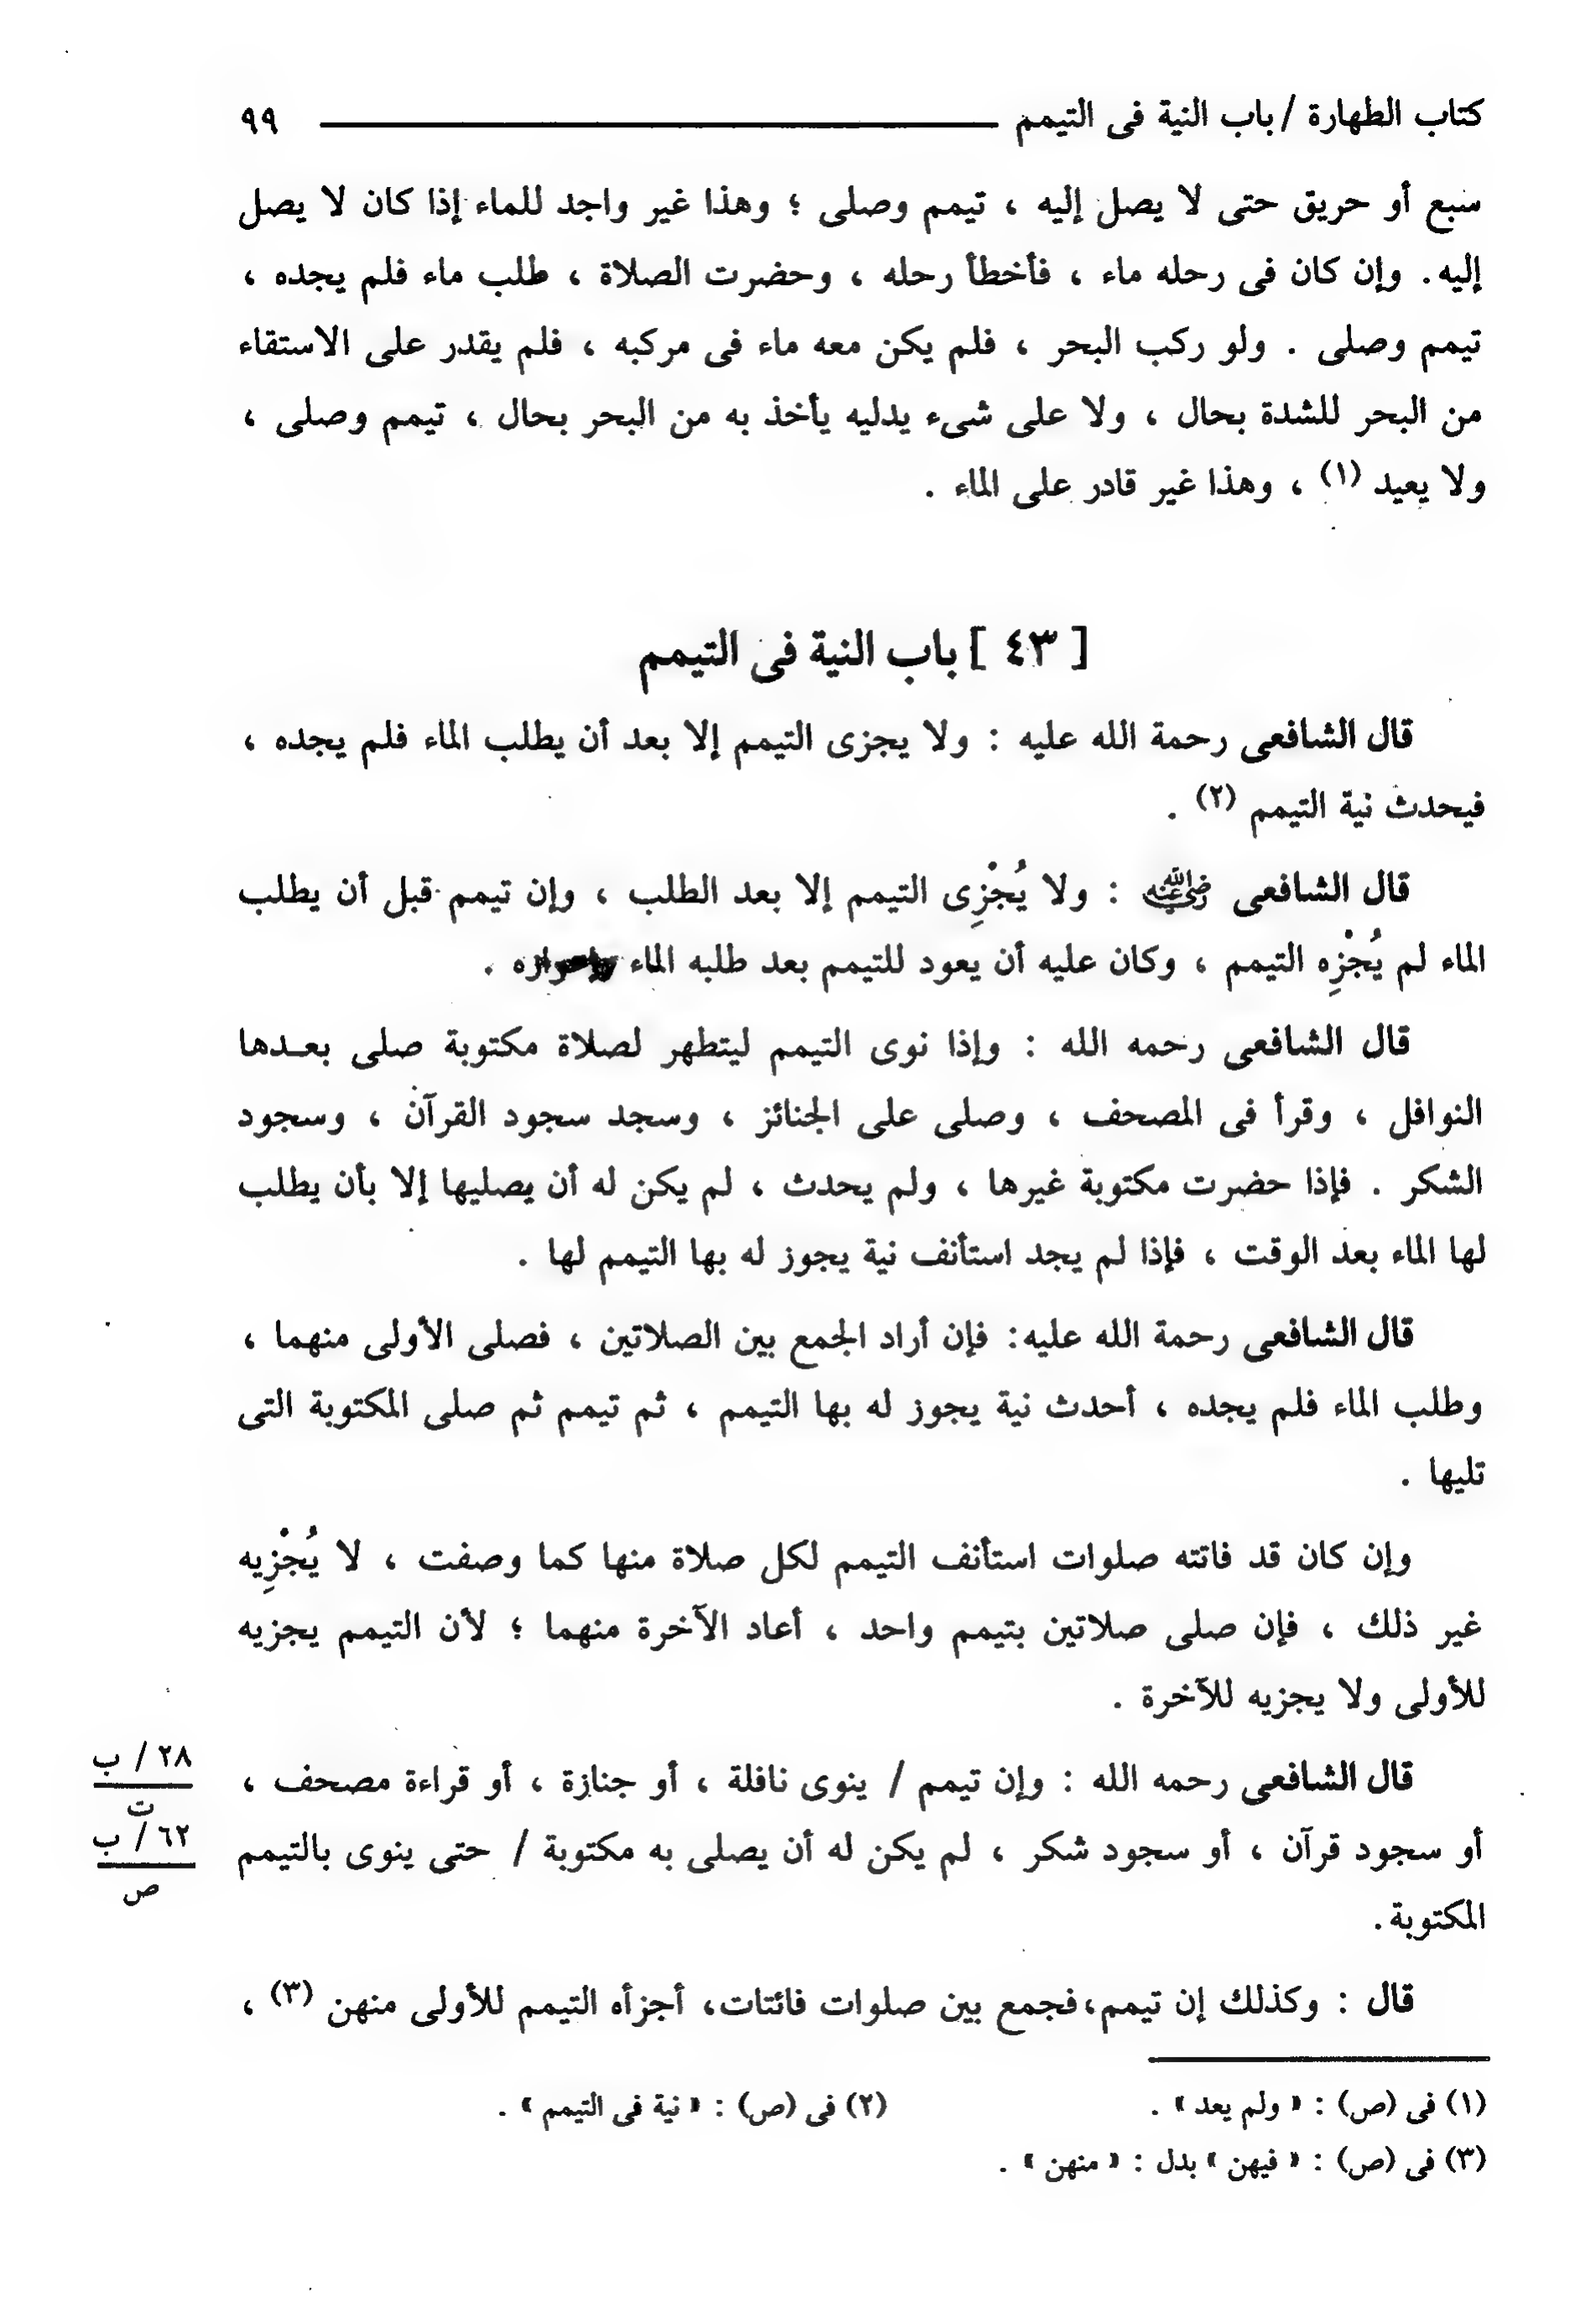 كتاب الطهارة / باب النية فى التيمم ٩٩
سبع أو حريق حتى لا يصل إليه ، تيمم وصلى ؛ وهذا غير واجد للماء إذا كان لا يصل
إليه . وإن كان فى رحله ماء ، فأخطأ رحله ، وحضرت الصلاة ، طلب ماء فلم يجده ،
تيمم وصلى . ولو ركب البحر ، فلم يكن معه ماء فى مركبه ، فلم يقدر على الاستقاء
من البحر للشدة بحال ، ولا على شىء يدليه يأخذ به من البحر بحال ، تيمم وصلى ،
ولا يعيد (١) ، وهذا غير قادر على الماء .
[ ٤٣ ] باب النية فى التيمم
قال الشافعى رحمة الله عليه : ولا يجزى التيمم إلا بعد أن يطلب الماء فلم يجده ،
فيحدث نية التيمم (٢) .
قال الشافعى رضي الله عنه : ولا يُجْزِى التيمم إلا بعد الطلب ، وإن تيمم قبل أن يطلب
الماء لم يُجْزِه التيمم ، وكان عليه أن يعود للتيمم بعد طلبه الماء .
قال الشافعى رحمه الله : وإذا نوى التيمم ليتطهر لصلاة مكتوبة صلى بعـدها
النوافل ، وقرأ فى المصحف ، وصلى على الجنائز ، وسجد سجود القرآن ، وسجود
الشكر . فإذا حضرت مكتوبة غيرها ، ولم يحدث ، لم يكن له أن يصليها إلا بأن يطلب
لها الماء بعد الوقت ، فإذا لم يجد استأنف نية يجوز له بها التيمم لها .
قال الشافعى رحمة الله عليه: فإن أراد الجمع بين الصلاتين ، فصلى الأولى منهما ،
وطلب الماء فلم يجده ، أحدث نية يجوز له بها التيمم ، ثم تيمم ثم صلى المكتوبة التى
تليها .
وإن كان قد فاتته صلوات استأنف التيمم لكل صلاة منها كما وصفت ، لا يُجْزِيه
غير ذلك ، فإن صلى صلاتين بتيمم واحد ، أعاد الآخرة منهما ؛ لأن التيمم يجزيه
للأولى ولا يجزيه للآخرة .
قال الشافعى رحمه الله : وإن تيمم / ينوى نافلة ، أو جنازة ، أو قراءة مصحف ،
٢٨ / ب
ت
أو سجود قرآن ، أو سجود شكر ، لم يكن له أن يصلى به مكتوبة / حتى ينوى بالتيمم
٦٢ / ب
ص
المكتوبة .
قال : وكذلك إن تيمم، فجمع بين صلوات فائتات، أجزأه التيمم للأولى منهن (٣) ،
(١) فى (ص) : « ولم يعد » . (٢) فى (ص) : « نية فى التيمم » .
(٣) فى (ص) : « فيهن » بدل : « منهن » .